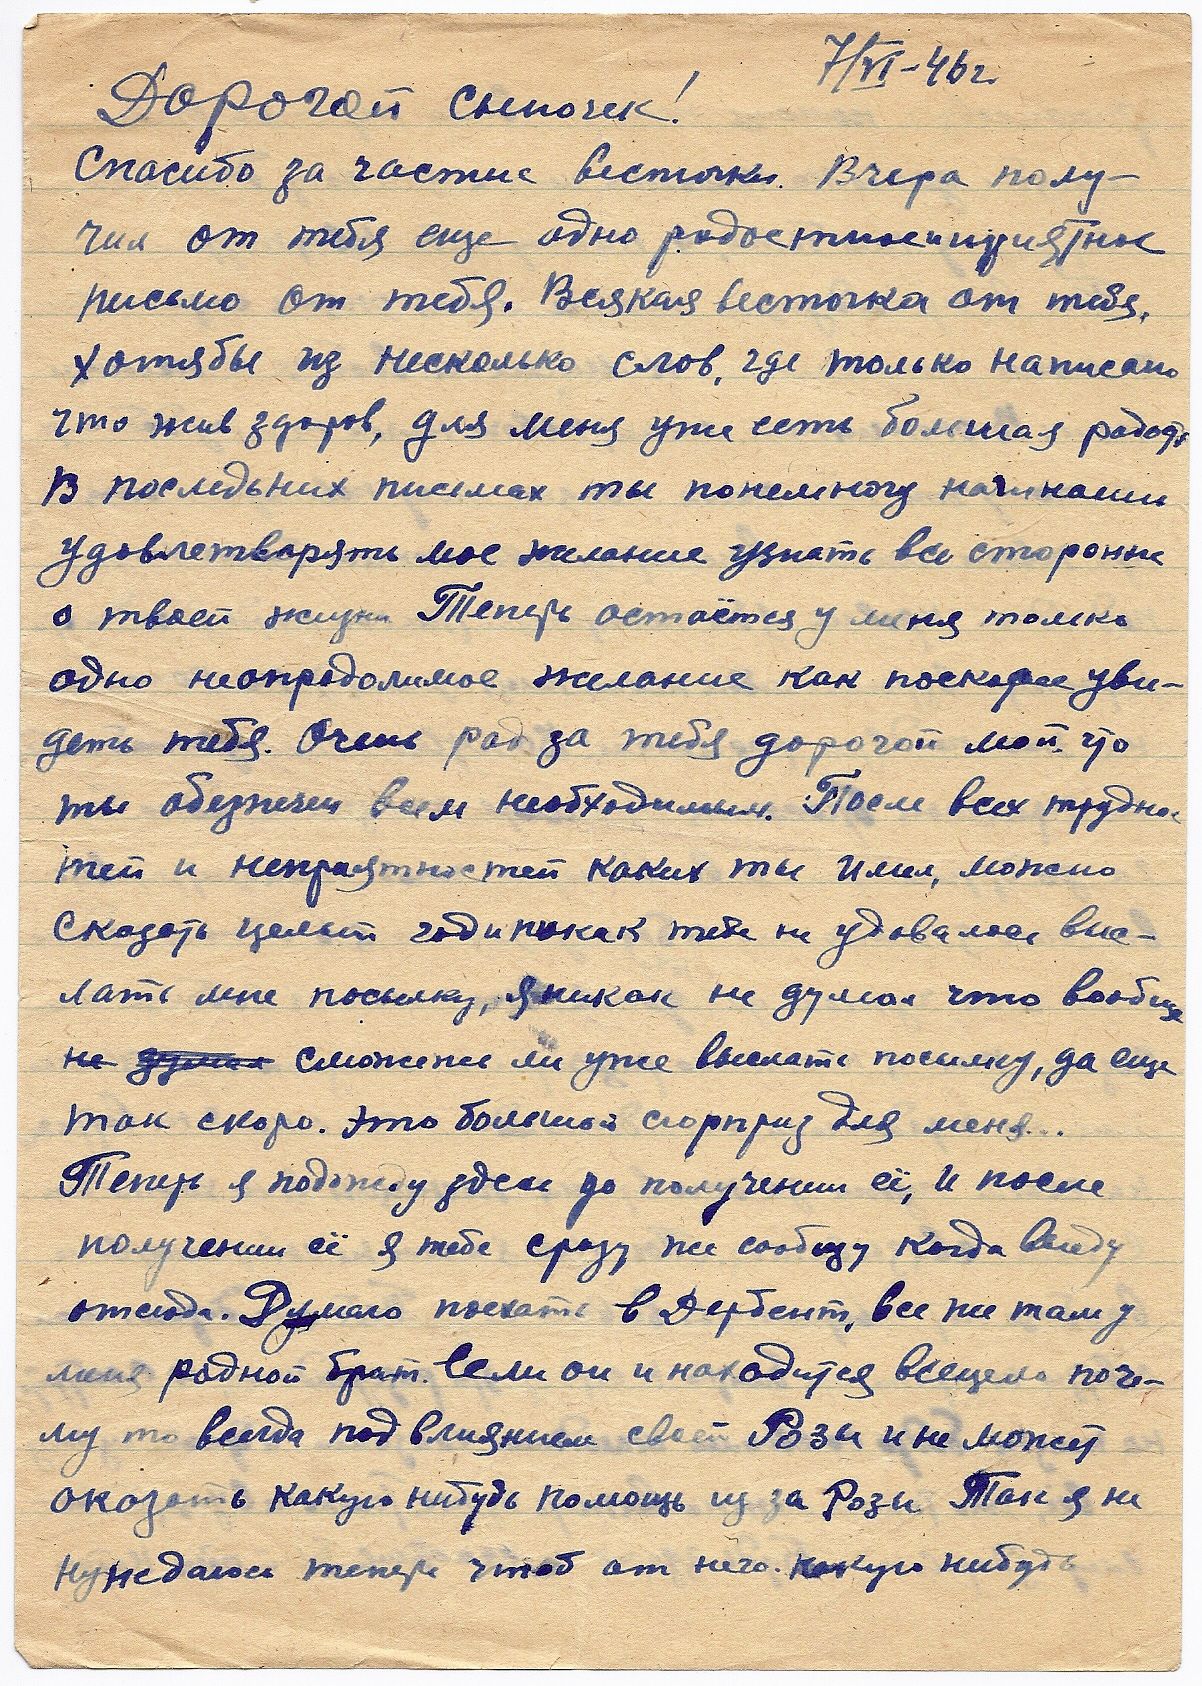 7/VI-46г.
Дорогой сыночек!
Спасибо за частые весточки. Вчера полу-
чил от тебя еще одно радостное и приятное
письмо от тебя. Всякая весточка от тебя,
хотябы из несколько слов, где только написано
что жив здоров, для меня уже есть большая радость
В последьних письмах ты понемногу начинаеш
удовлетворять мое желание узнать все сторонне
о твоей жизни Теперь остаётся у меня только
одно неопродолимое желание как поскорее уви-
деть тебя. Очень рад за тебя дорогой мой, что
ты обезпечен всем необходимым. После всех труднос
тей и неприятностей каких ты имел, можно
сказать целый год и никак тебе не удавалось выс-
лать мне посылку, я никак не думал что вообще
не думал сможеш ли уже выслать посылку, да еще
так скоро. Это большой сюрприз для меня...
Теперь я подожду здесь до получения её, и после
получения её я тебе сразу же сообщу когда выеду
отсюда. Думаю поехать в Дербент, все же там у
меня родной брат. Если он и находится всецело поче-
му то всегда под влиянием своей Розы и не может
оказать какую нибудь помощь из за Розы Так я не
нуждаюсь теперь чтоб от него какую нибудь